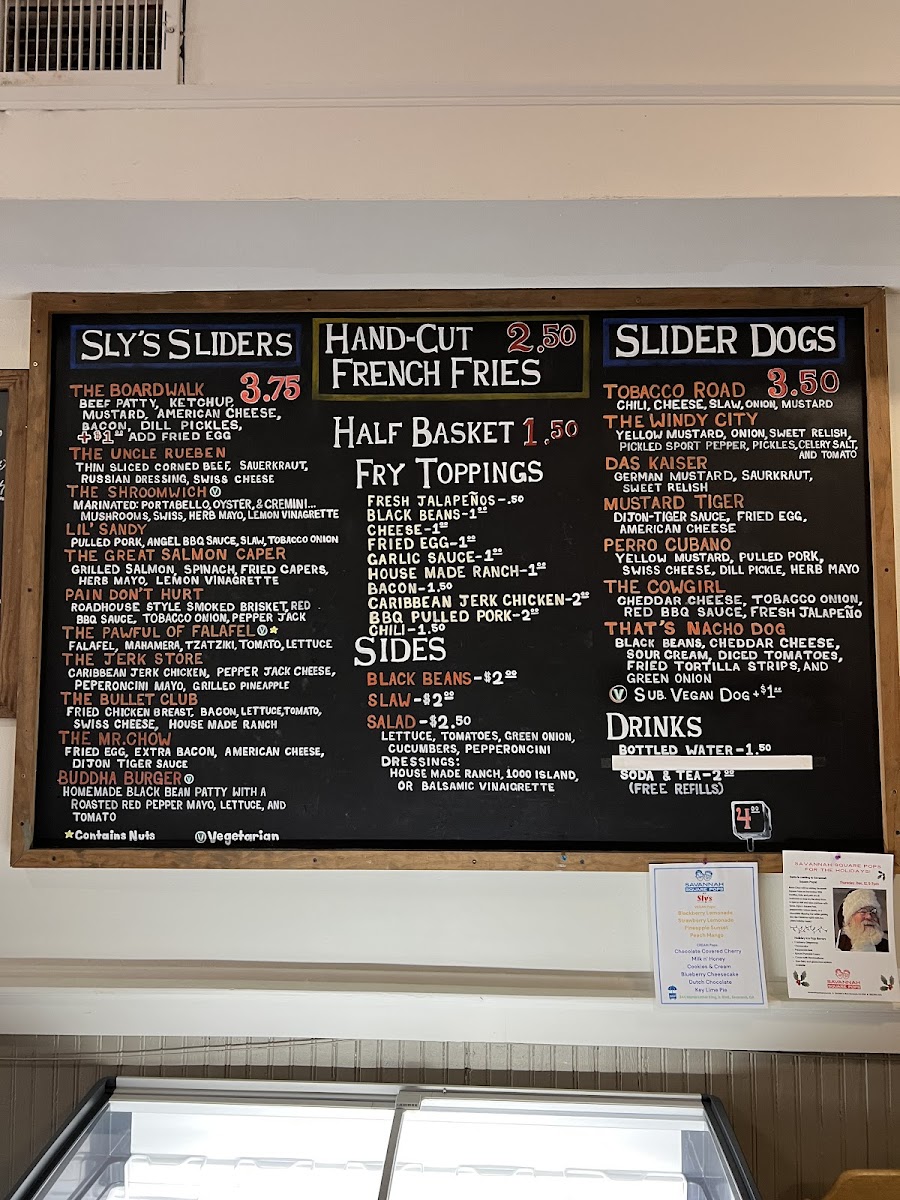 SLY'S SLIDERS
THE BOARDWALK 3.75
BEEF PATTY, KETCHUP,
MUSTARD, AMERICAN CHEESE,
BACON, DILL PICKLES,
+$1.00 ADD FRIED EGG
THE UNCLE RUEBEN
THIN SLICED CORNED BEEF, SAUERKRAUT,
RUSSIAN DRESSING, SWISS CHEESE
THE SHROOMWICH V
MARINATED: PORTABELLO, OYSTER, & CREMINI...
MUSHROOMS, SWISS, HERB MAYO, LEMON VINAGRETTE
LIL' SANDY
PULLED PORK, ANGEL BBQ SAUCE, SLAW, TOBACCO ONION
THE GREAT SALMON CAPER
GRILLED SALMON, SPINACH, FRIED CAPERS,
HERB MAYO, LEMON VINAGRETTE
PAIN DON'T HURT
ROADHOUSE STYLE SMOKED BRISKET, RED
BBQ SAUCE, TOBACCO ONION, PEPPER JACK
THE PAWFUL OF FALAFEL V ★
FALAFEL, MAHAMERA, TZATZIKI, TOMATO, LETTUCE
THE JERK STORE
CARIBBEAN JERK CHICKEN, PEPPER JACK CHEESE,
PEPERONCINI MAYO, GRILLED PINEAPPLE
THE BULLET CLUB
FRIED CHICKEN BREAST, BACON, LETTUCE, TOMATO,
SWISS CHEESE, HOUSE MADE RANCH
THE MR. CHOW
FRIED EGG, EXTRA BACON, AMERICAN CHEESE,
DIJON TIGER SAUCE
BUDDHA BURGER V
HOMEMADE BLACK BEAN PATTY WITH A
ROASTED RED PEPPER MAYO, LETTUCE, AND
TOMATO
★Contains Nuts V Vegetarian
HAND-CUT 2.50
FRENCH FRIES
HALF BASKET 1.50
FRY TOPPINGS
FRESH JALAPEÑOS-.50
BLACK BEANS-1.00
CHEESE-1.00
FRIED EGG-1.00
GARLIC SAUCE-1.00
HOUSE MADE RANCH-1.00
BACON-1.50
CARIBBEAN JERK CHICKEN-2.00
BBQ PULLED PORK-2.00
CHILI-1.50
SIDES
BLACK BEANS-$2.00
SLAW-$2.00
SALAD-$2.50
LETTUCE, TOMATOES, GREEN ONION,
CUCUMBERS, PEPPERONCINI
DRESSINGS:
HOUSE MADE RANCH, 1000 ISLAND,
OR BALSAMIC VINAIGRETTE
SLIDER DOGS
TOBACCO ROAD 3.50
CHILI, CHEESE, SLAW, ONION, MUSTARD
THE WINDY CITY
YELLOW MUSTARD, ONION, SWEET RELISH,
PICKLED SPORT PEPPER, PICKLES, CELERY SALT,
AND TOMATO
DAS KAISER
GERMAN MUSTARD, SAURKRAUT,
SWEET RELISH
MUSTARD TIGER
DIJON-TIGER SAUCE, FRIED EGG,
AMERICAN CHEESE
PERRO CUBANO
YELLOW MUSTARD, PULLED PORK,
SWISS CHEESE, DILL PICKLE, HERB MAYO
THE COWGIRL
CHEDDAR CHEESE, TOBACCO ONION,
RED BBQ SAUCE, FRESH JALAPEÑO
THAT'S NACHO DOG
BLACK BEANS, CHEDDAR CHEESE,
SOUR CREAM, DICED TOMATOES,
FRIED TORTILLA STRIPS, AND
GREEN ONION
V SUB. VEGAN DOG +$1.00
DRINKS
BOTTLED WATER-1.50
SODA & TEA-2.00
(FREE REFILLS)
4.00
SAVANNAH
SQUARE POPS
Slys
Blackberry Lemonade
Strawberry Lemonade
Pineapple Sunset
Peach Mango
CREAM Pops
Chocolate Covered Cherry
Milk n' Honey
Cookies & Cream
Blueberry Cheesecake
Dutch Chocolate
Key Lime Pie
SAVANNAH SQUARE POPS
FOR THE HOLIDAYS!
SAVANNAH
SQUARE POPS